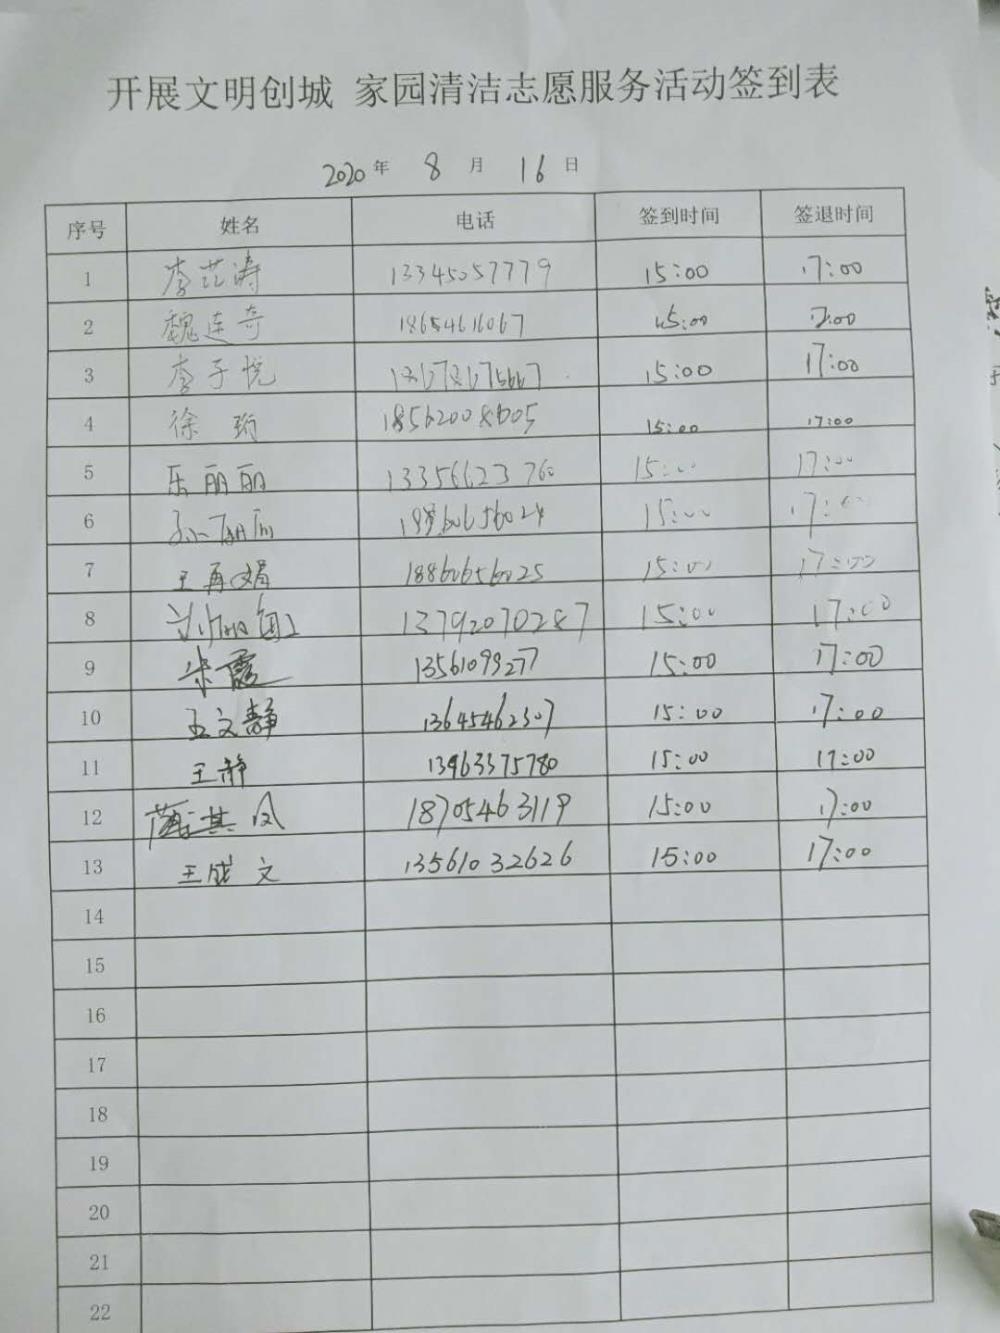 开展文明创城 家园清洁志愿服务活动签到表
2020年 8 月 16 日
序号 姓名 电话 签到时间 签退时间
1 李芷涛 13345057779 15:00 17:00
2 魏连奇 18654616067 15:00 17:00
3 李子悦 15:00 17:00
4 徐 15:00 17:00
5 乐丽丽 13356623760 15:00 17:00
6 15:00 17:00
7 王再娟 18860656025 15:00 17:00
8 13792070287 15:00 17:00
9 朱霞 13561099277 15:00 17:00
10 王文静 13645462307 15:00 17:00
11 王静 13963375780 15:00 17:00
12 其凤 18705463119 15:00 17:00
13 王成文 13561032626 15:00 17:00
14
15
16
17
18
19
20
21
22